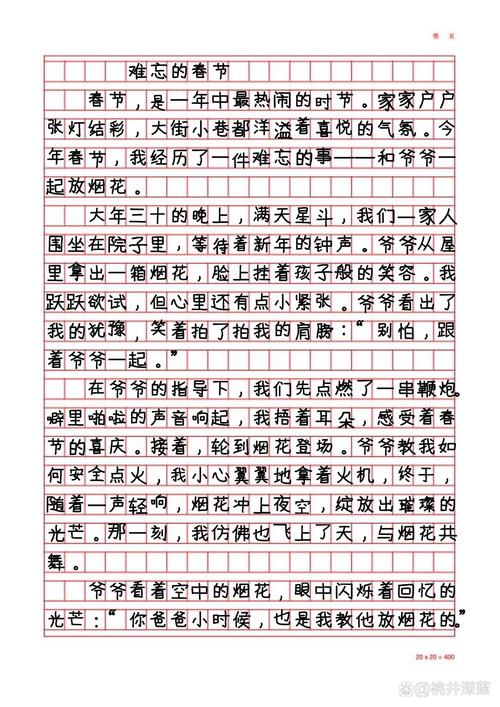 第 页
难忘的春节
春节，是一年中最热闹的时节。家家户户
张灯结彩，大街小巷都洋溢着喜悦的气氛。今
年春节，我经历了一件难忘的事——和爷爷一
起放烟花。
大年三十的晚上，满天星斗，我们一家人
围坐在院子里，等待着新年的钟声。爷爷从屋
里拿出一箱烟花，脸上挂着孩子般的笑容。我
跃跃欲试，但心里还有点小紧张。爷爷看出了
我的犹豫，笑着拍了拍我的肩膀：“别怕，跟
着爷爷一起。”
在爷爷的指导下，我们先点燃了一串鞭炮。
噼里啪啦的声音响起，我捂着耳朵，感受着春
节的喜庆。接着，轮到烟花登场。爷爷教我如
何安全点火，我小心翼翼地拿着火机，终于，
随着一声轻响，烟花冲上夜空，绽放出璀璨的
光芒。那一刻，我仿佛也飞上了天，与烟花共
舞。
爷爷看着空中的烟花，眼中闪烁着回忆的
光芒：“你爸爸小时候，也是我教他放烟花的。”
20 x 20 = 400
@桃井深蓝